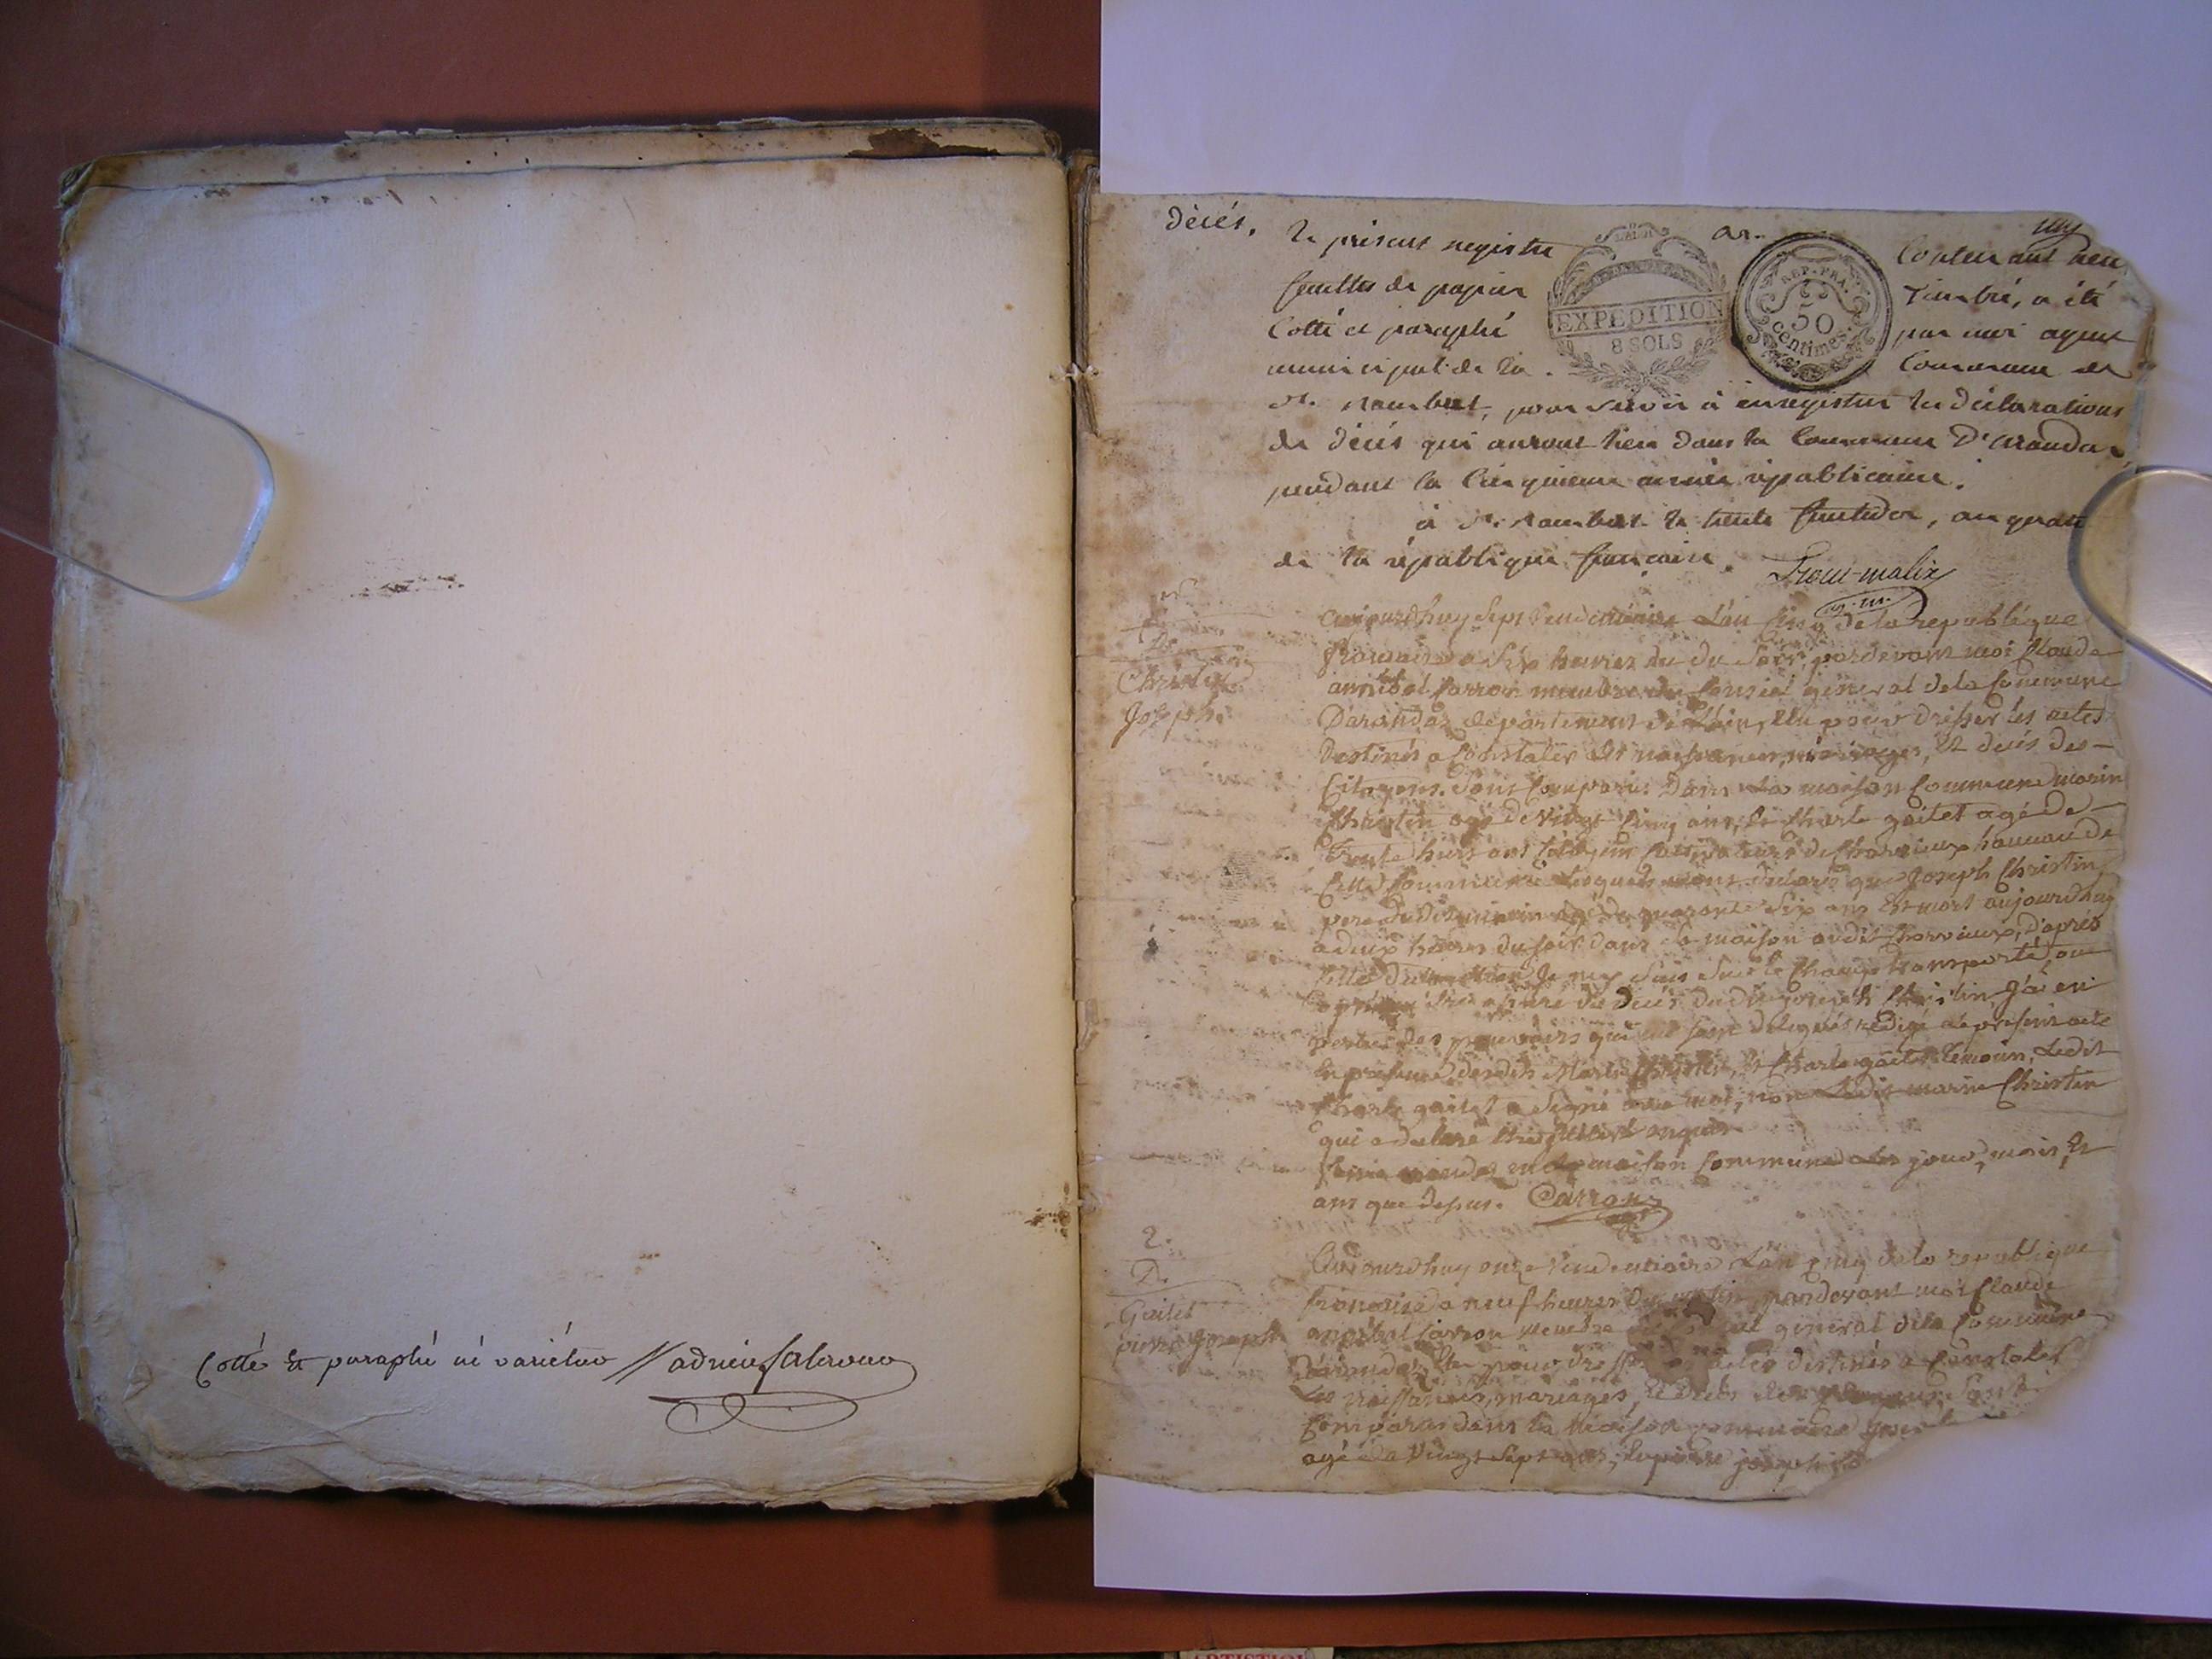 Cotté et paraphé ne varietur
décés.
Le présent registre
feuilles de papier
Cotté et paraphé
municipal de la
EXPEDITION
8 SOLS
REP. FRA.
50
centimes.
timbré, a été
par moi agent
Commune de
St. Rambert, pour servir à enregistrer les déclarations
de décés qui auront lieu dans la Commune D'aranda
pendant la Cinquieme année républicaine.
à St. Rambert le trente fructidor, an quatre
de la république francaise.
Christin
Joseph.
aujourdhuy sept vendemiaire L'an Cinq de la republéque
francaise a six heures du du soir, pardevant moi Claude
annibal Carron membre du Conseil général de la Commune
Darandas département de L'ain, élu pour dresser les actes
Destinés a Constater les naissances, mariages, Et decés des
Citoyens. Sont Comparus Dans la maison Commune marin
Christin agé de vingt Cinq ans, et Charle gaitet agé de
Trente huit ans Citoyens Cultivateurs de Charvieux hameau de
Cette Commune Lesquels mont déclaré que Joseph Christin
pere dudit marin agé de quarante six ans Est mort aujourdhuy
a deux heures du soir dans sa maison audit Charvieux, D'après
Cette declaration Je my suis sur le Champ transporté, ou
après m'être assuré du Decés dudit joseph Christin J'ai en
vertu des pouvoirs qui me sont delegués rédigé le présent acte
En présence desdits Marin Christin, Et Charle gaitet témoin, Ledit
Charle gaitet a signé avec moi, non Ledit marin Christin
qui a declaré
en la maison Commune Les jour, mois, Et
ans que dessus. Carron
2.
D.
Gaitet
pierre Joseph
Aujourdhuy onze vendemiaire L'an Cinq de la republique
francaise a neuf heures du matin, pardevant moi Claude
annibal Carron membre du général de la Commune
Darandas Elu pour dresser les actes destinés a Constater
Les naissances, mariages, Et Decés des Sont
Comparus dans la Maison commune
agé de vingt sept ans, Et pierre joseph